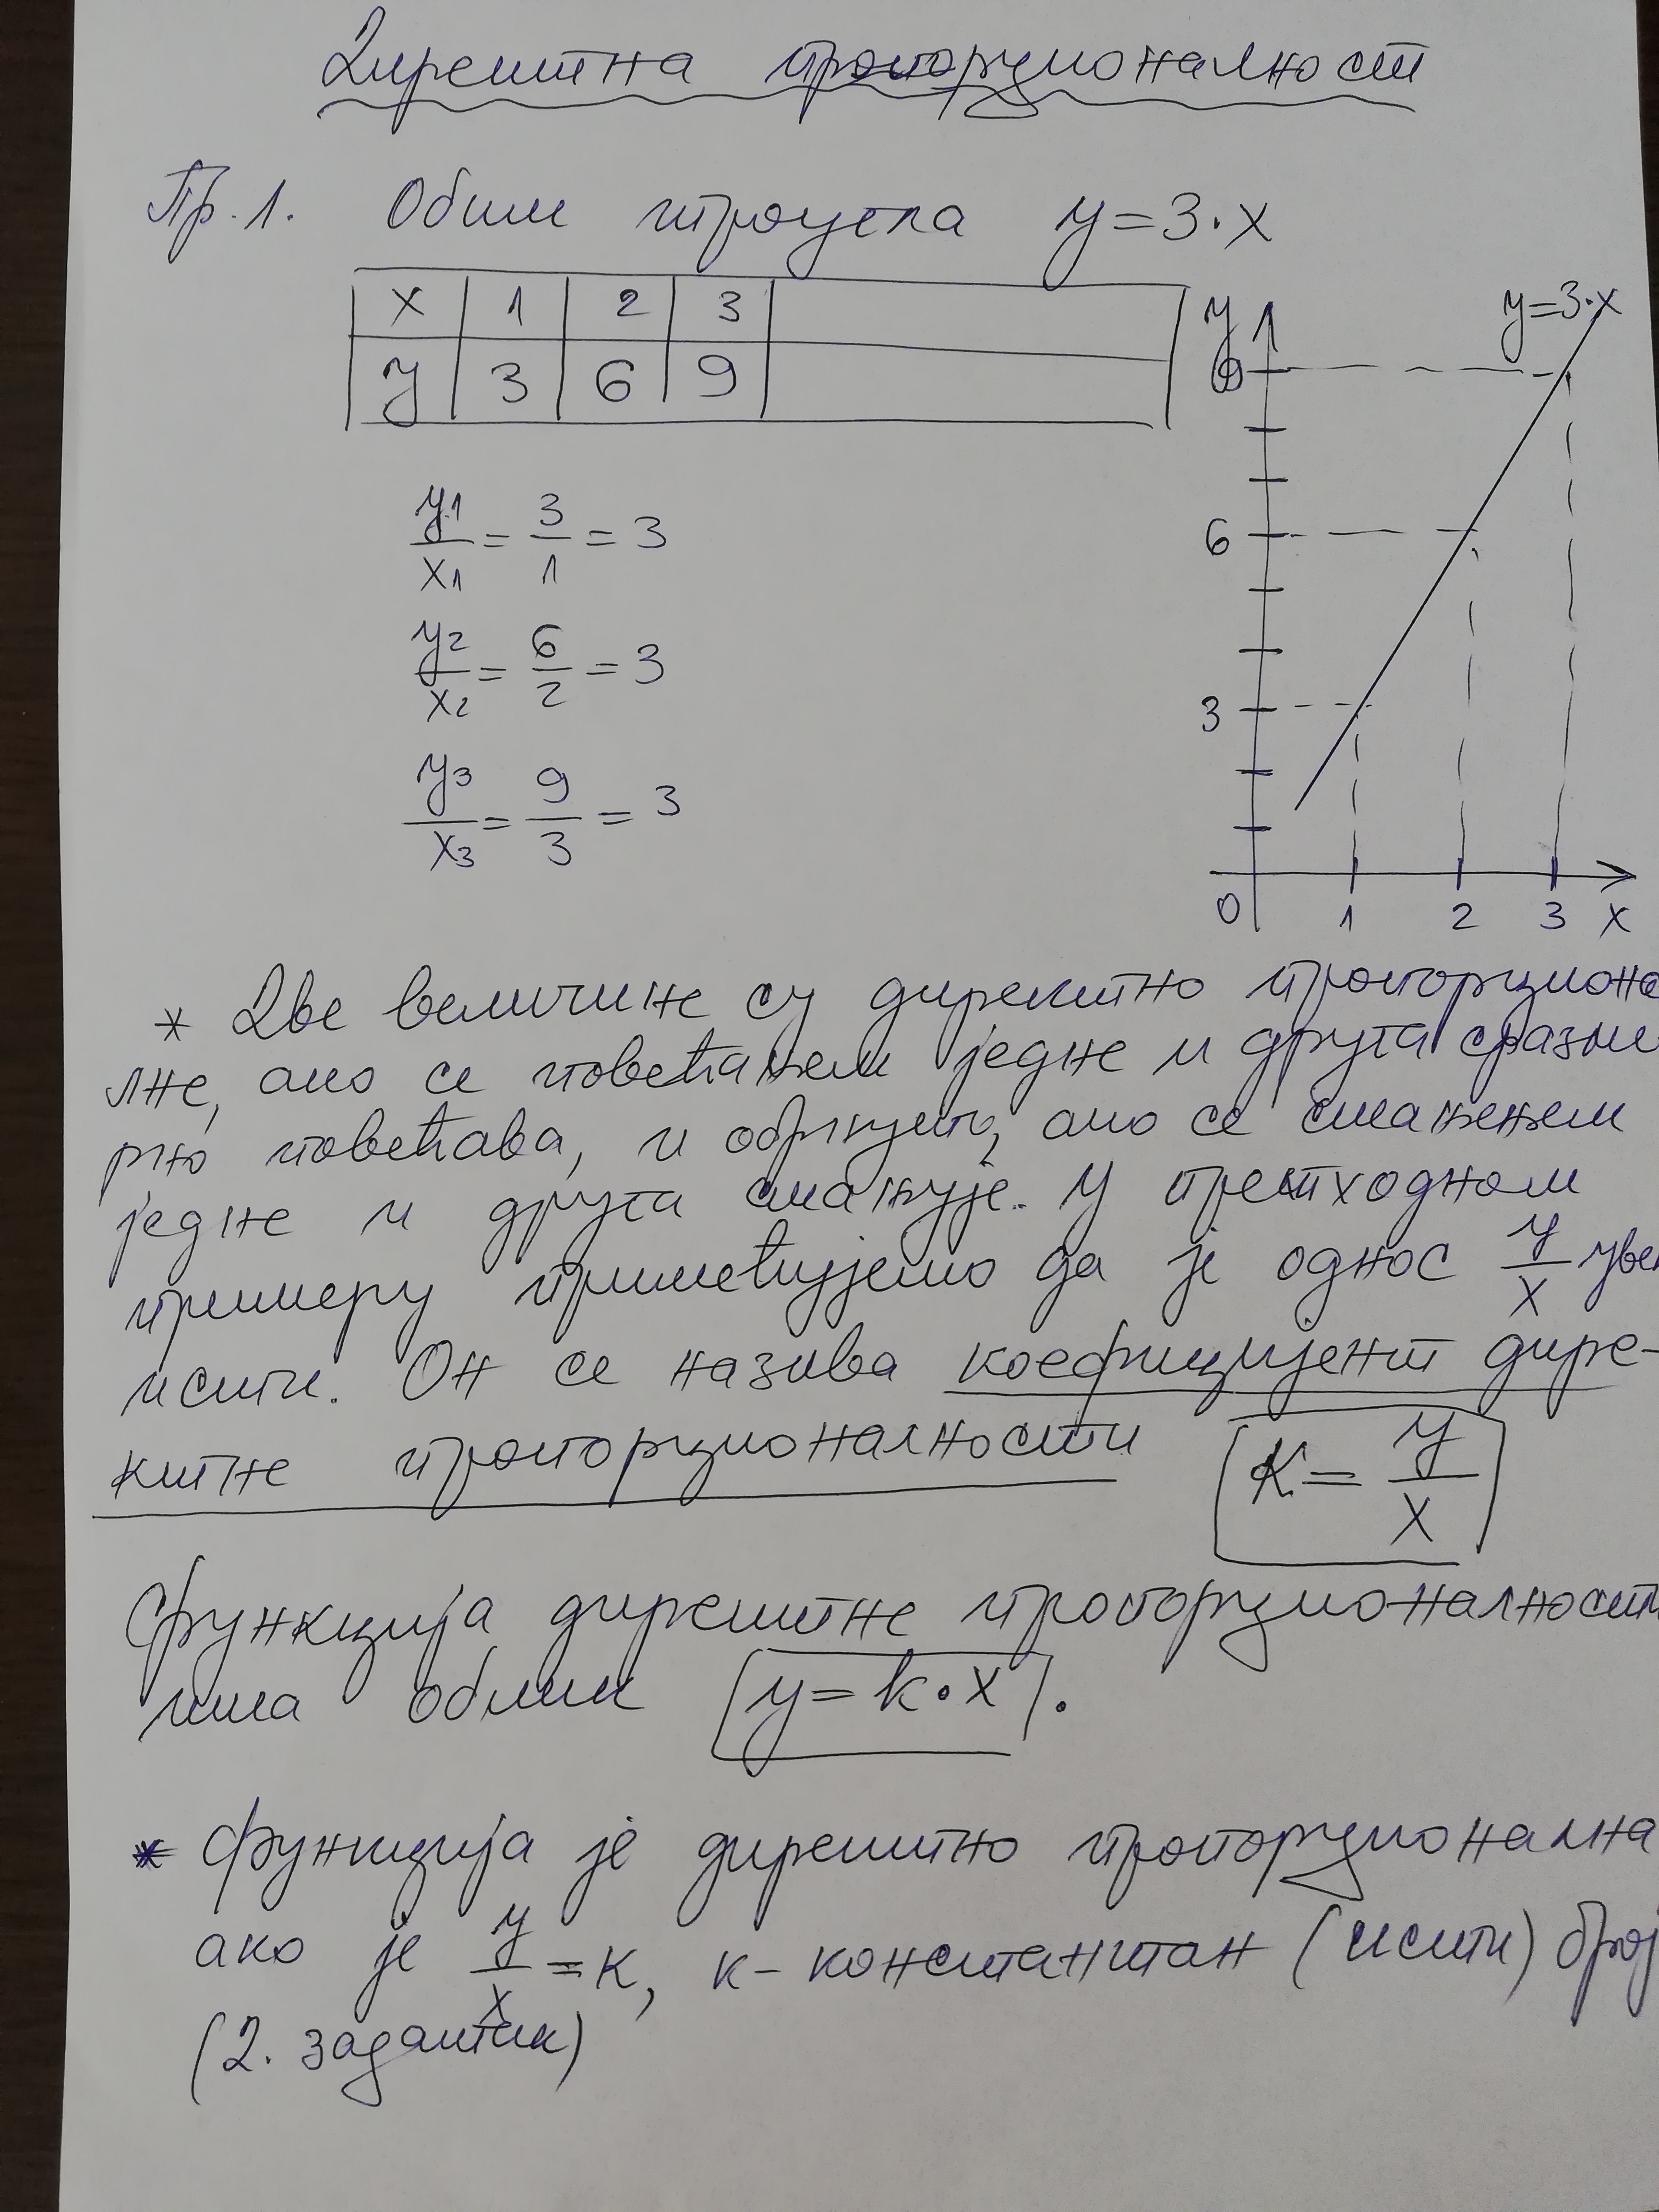 Директна пропорционалност
Пр. 1. Обим троугла y=3·x
x 1 2 3
y 3 6 9
y1/x1 = 3/1 = 3
y2/x2 = 6/2 = 3
y3/x3 = 9/3 = 3
y
y=3·x
9
6
3
0 1 2 3 x
* Две величине су директно пропорциона
лне, ако се повећањем једне и друга сразме
рно повећава, и обрнуто, ако се смањењем
једне и друга смањује. У претходном
примеру примећујемо да је однос y/x увек
исти. Он се назива коефицијент дире-
ктне пропорционалности K = y/x
Функција директне пропорционалности
има облик y = k·x.
* Функција је директно пропорционална
ако је y/x = к, к - константан (исти) број
(2. задатак)